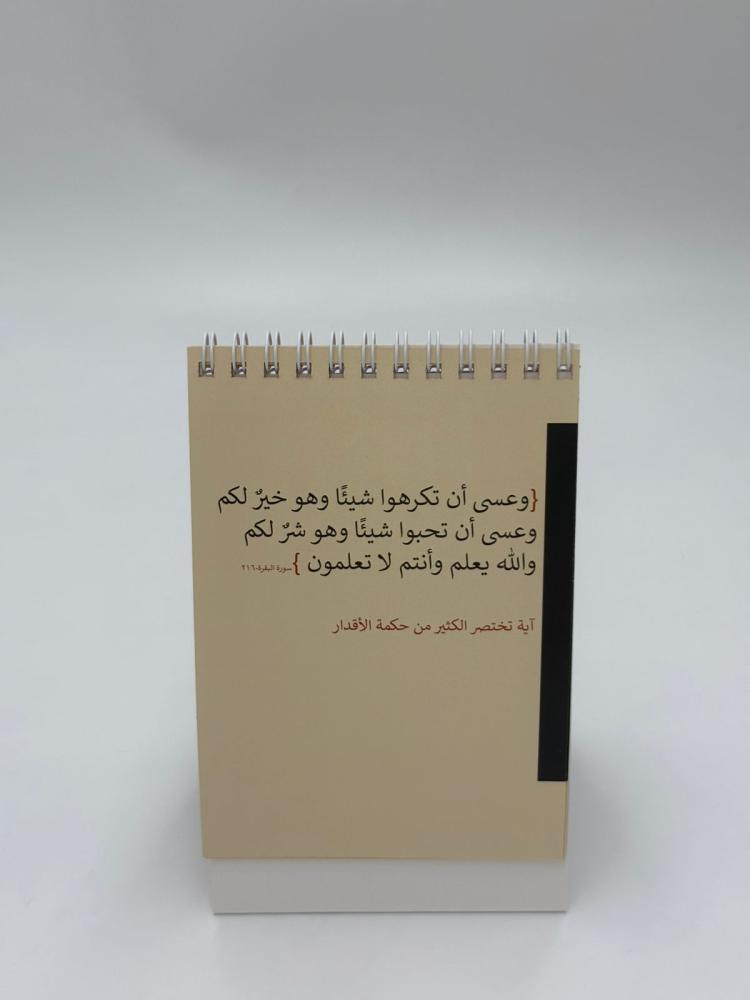 {وعسى أن تكرهوا شيئًا وهو خيرٌ لكم
وعسى أن تحبوا شيئًا وهو شرٌ لكم
والله يعلم وأنتم لا تعلمون } سورة البقرة-٢١٦
آية تختصر الكثير من حكمة الأقدار